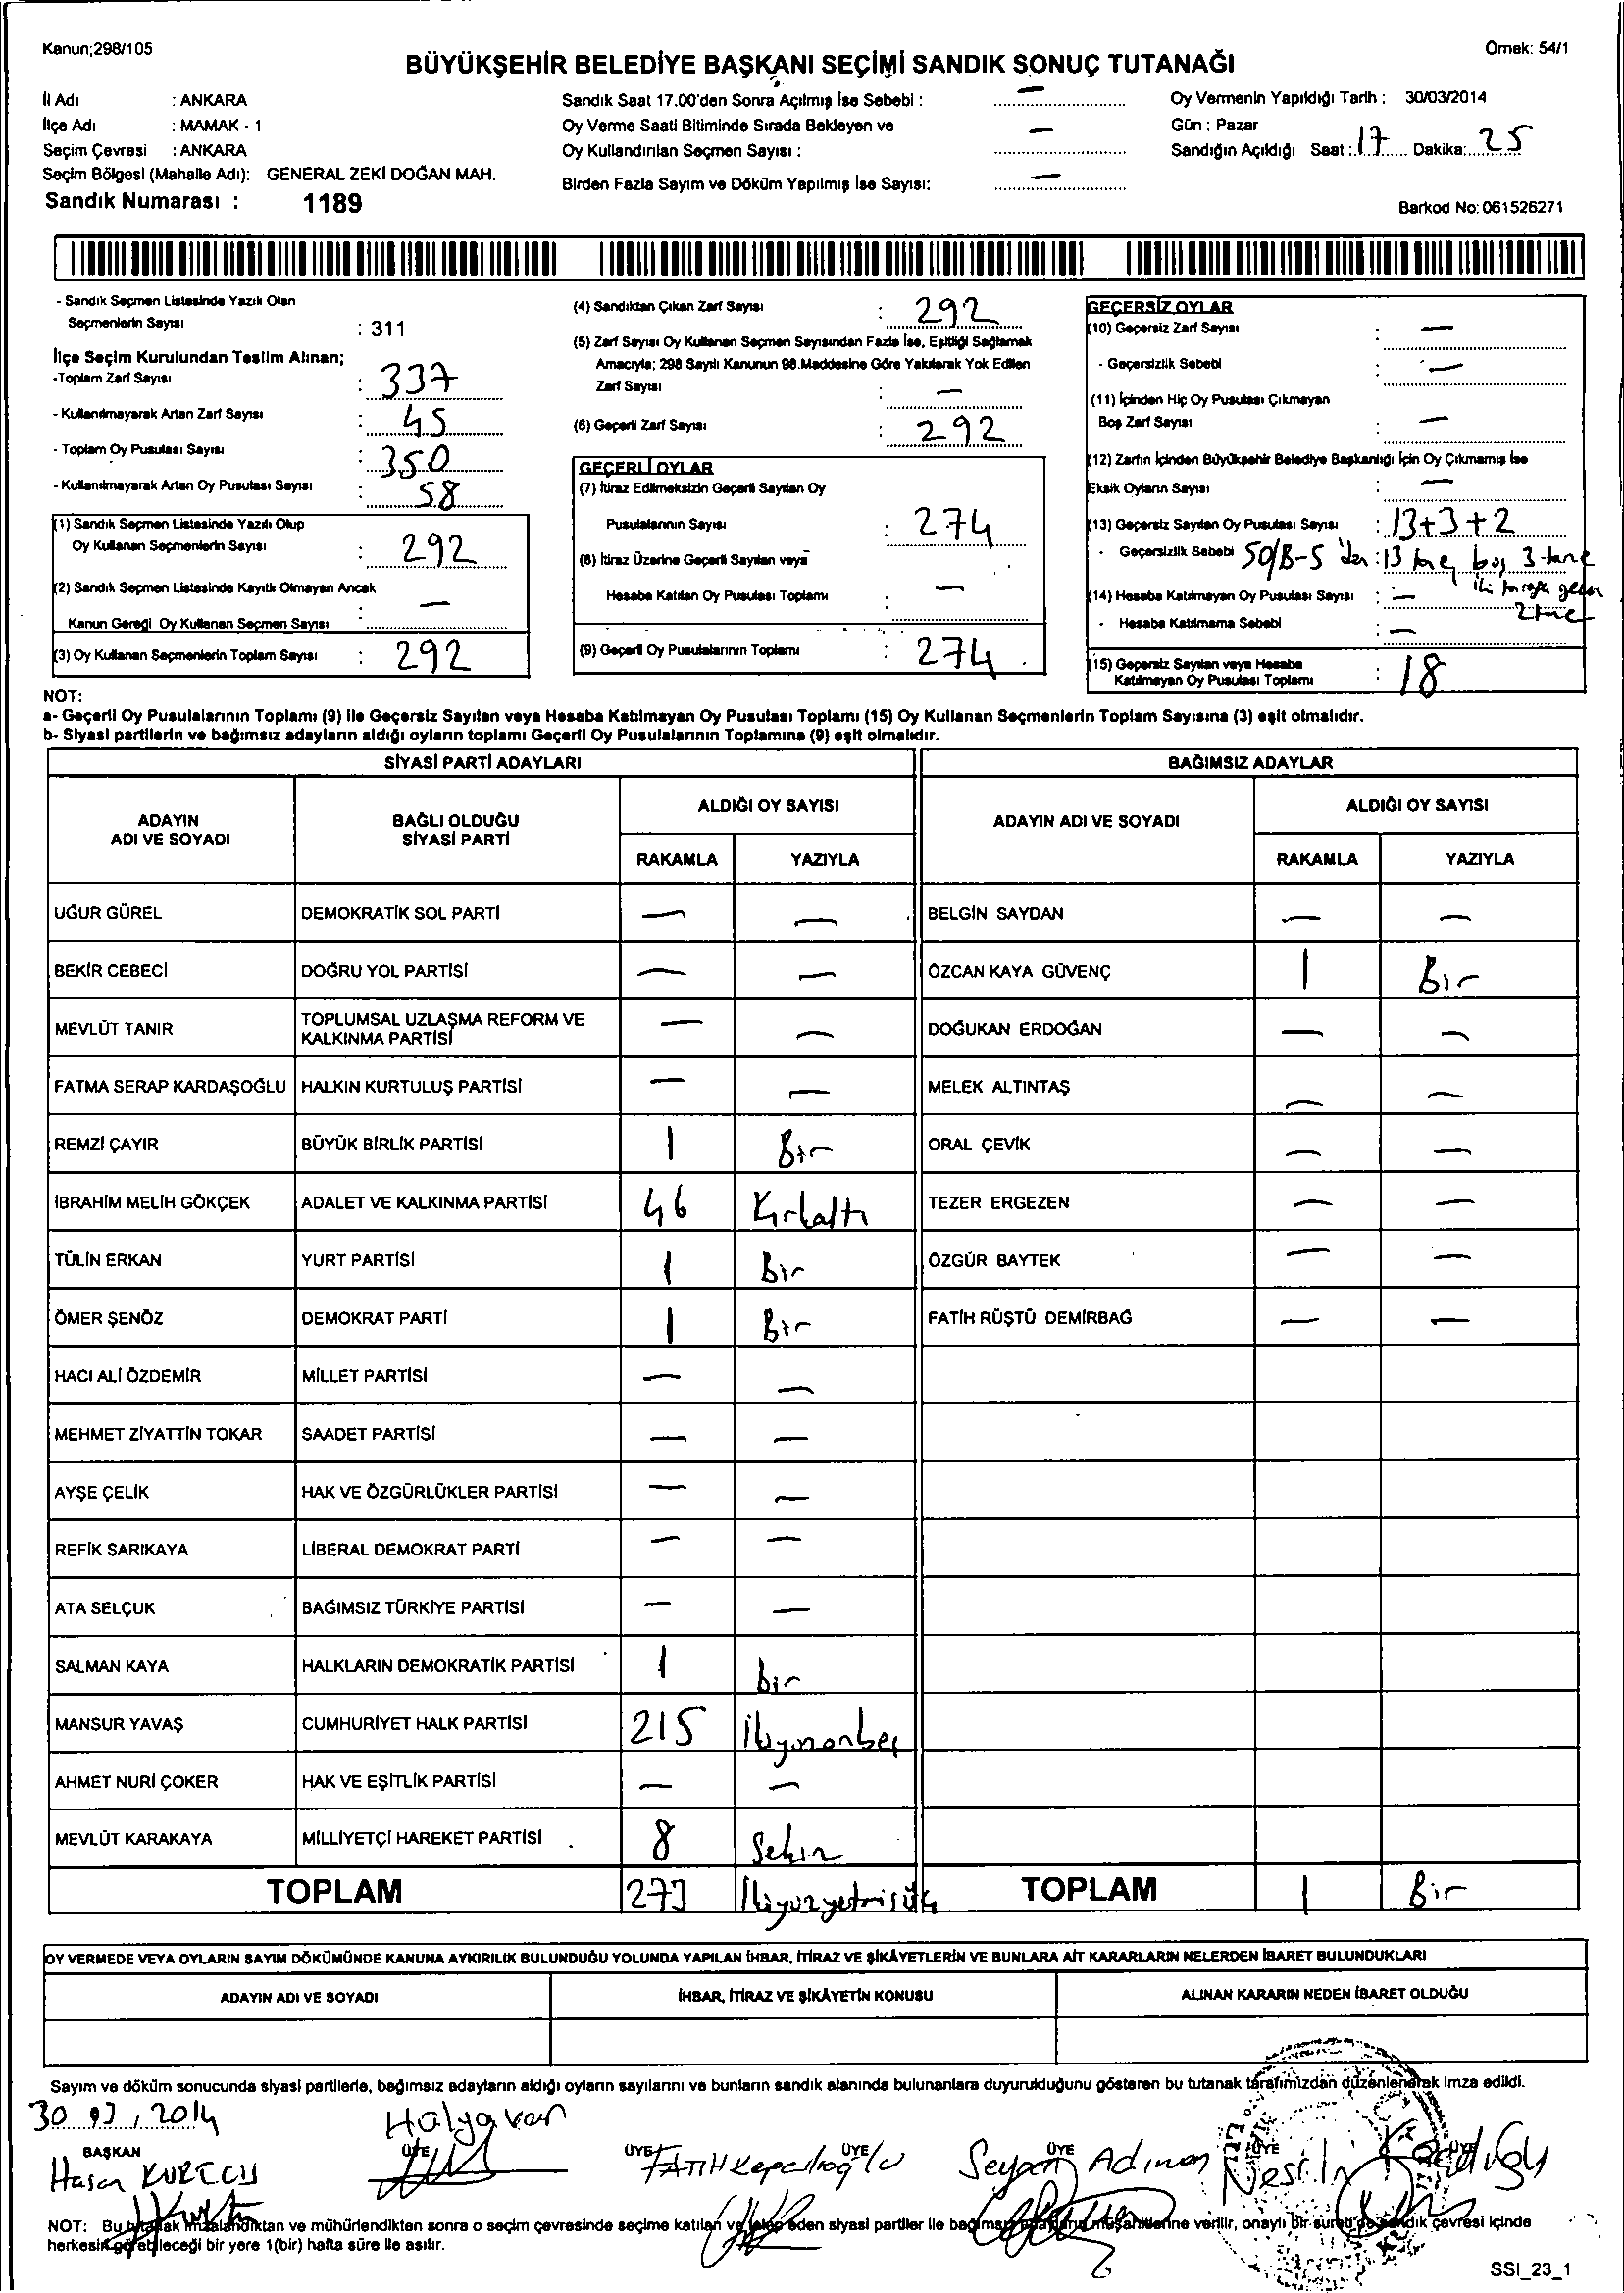 Kanun;298/105
Örnek: 54/1
BÜYÜKŞEHİR BELEDİYE BAŞKANI SEÇİMİ SANDIK SONUÇ TUTANAĞI
İl Adı : ANKARA
İlçe Adı : MAMAK - 1
Seçim Çevresi : ANKARA
Seçim Bölgesi (Mahalle Adı): GENERAL ZEKİ DOĞAN MAH.
Sandık Numarası : 1189
Sandık Saat 17.00'den Sonra Açılmış İse Sebebi : —
Oy Verme Saati Bitiminde Sırada Bekleyen ve
Oy Kullandırılan Seçmen Sayısı : —
Birden Fazla Sayım ve Döküm Yapılmış İse Sayısı: —
Oy Vermenin Yapıldığı Tarih : 30/03/2014
Gün : Pazar
Sandığın Açıldığı Saat : 17 Dakika: 25
Barkod No: 061526271
- Sandık Seçmen Listesinde Yazılı Olan
Seçmenlerin Sayısı : 311
İlçe Seçim Kurulundan Teslim Alınan;
-Toplam Zarf Sayısı : 337
- Kullanılmayarak Artan Zarf Sayısı : 45
- Toplam Oy Pusulası Sayısı : 350
- Kullanılmayarak Artan Oy Pusulası Sayısı : 58
(1) Sandık Seçmen Listesinde Yazılı Olup
Oy Kullanan Seçmenlerin Sayısı : 292
(2) Sandık Seçmen Listesinde Kayıtlı Olmayan Ancak
Kanun Gereği Oy Kullanan Seçmen Sayısı : —
(3) Oy Kullanan Seçmenlerin Toplam Sayısı : 292
(4) Sandıktan Çıkan Zarf Sayısı : 292
(5) Zarf Sayısı Oy Kullanan Seçmen Sayısından Fazla İse, Eşitliği Sağlamak
Amacıyla; 298 Sayılı Kanunun 98.Maddesine Göre Yakılarak Yok Edilen
Zarf Sayısı : —
(6) Geçerli Zarf Sayısı : 292
GEÇERLİ OYLAR
(7) İtiraz Edilmeksizin Geçerli Sayılan Oy
Pusulalarının Sayısı : 274
(8) İtiraz Üzerine Geçerli Sayılan veya
Hesaba Katılan Oy Pusulası Toplamı —
(9) Geçerli Oy Pusulalarının Toplamı : 274
GEÇERSİZ OYLAR
(10) Geçersiz Zarf Sayısı : —
- Geçersizlik Sebebi : —
(11) İçinden Hiç Oy Pusulası Çıkmayan
Boş Zarf Sayısı : —
(12) Zarfın İçinden Büyükşehir Belediye Başkanlığı İçin Oy Çıkmamış İse
Eksik Oyların Sayısı : —
(13) Geçersiz Sayılan Oy Pusulası Sayısı : 13+3+2
- Geçersizlik Sebebi 50/B-5 'den : 13 tane boş 3 tane
iki tarafa geçen
2 tane
(14) Hesaba Katılmayan Oy Pusulası Sayısı : —
- Hesaba Katılmama Sebebi : —
(15) Geçersiz Sayılan veya Hesaba
Katılmayan Oy Pusulası Toplamı : 18
NOT:
a- Geçerli Oy Pusulalarının Toplamı (9) ile Geçersiz Sayılan veya Hesaba Katılmayan Oy Pusulası Toplamı (15) Oy Kullanan Seçmenlerin Toplam Sayısına (3) eşit olmalıdır.
b- Siyasi partilerin ve bağımsız adayların aldığı oyların toplamı Geçerli Oy Pusulalarının Toplamına (9) eşit olmalıdır.
SİYASİ PARTİ ADAYLARI
BAĞIMSIZ ADAYLAR
ADAYIN
ADI VE SOYADI
BAĞLI OLDUĞU
SİYASİ PARTİ
ALDIĞI OY SAYISI
RAKAMLA YAZIYLA
ADAYIN ADI VE SOYADI
ALDIĞI OY SAYISI
RAKAMLA YAZIYLA
UĞUR GÜREL DEMOKRATİK SOL PARTİ — — BELGİN SAYDAN — —
BEKİR CEBECİ DOĞRU YOL PARTİSİ — — ÖZCAN KAYA GÜVENÇ 1 Bir
MEVLÜT TANIR TOPLUMSAL UZLAŞMA REFORM VE
KALKINMA PARTİSİ — — DOĞUKAN ERDOĞAN — —
FATMA SERAP KARDAŞOĞLU HALKIN KURTULUŞ PARTİSİ — — MELEK ALTINTAŞ — —
REMZİ ÇAYIR BÜYÜK BİRLİK PARTİSİ 1 Bir ORAL ÇEVİK — —
İBRAHİM MELİH GÖKÇEK ADALET VE KALKINMA PARTİSİ 46 Kırkaltı TEZER ERGEZEN — —
TÜLİN ERKAN YURT PARTİSİ 1 Bir ÖZGÜR BAYTEK — —
ÖMER ŞENÖZ DEMOKRAT PARTİ 1 Bir FATİH RÜŞTÜ DEMİRBAĞ — —
HACI ALİ ÖZDEMİR MİLLET PARTİSİ — —
MEHMET ZİYATTİN TOKAR SAADET PARTİSİ — —
AYŞE ÇELİK HAK VE ÖZGÜRLÜKLER PARTİSİ — —
REFİK SARIKAYA LİBERAL DEMOKRAT PARTİ — —
ATA SELÇUK BAĞIMSIZ TÜRKİYE PARTİSİ — —
SALMAN KAYA HALKLARIN DEMOKRATİK PARTİSİ 1 bir
MANSUR YAVAŞ CUMHURİYET HALK PARTİSİ 215 ikiyüzonbeş
AHMET NURİ ÇOKER HAK VE EŞİTLİK PARTİSİ — —
MEVLÜT KARAKAYA MİLLİYETÇİ HAREKET PARTİSİ 8 Sekiz
TOPLAM 273 İkiyüzyetmişüç TOPLAM 1 Bir
OY VERMEDE VEYA OYLARIN SAYIM DÖKÜMÜNDE KANUNA AYKIRILIK BULUNDUĞU YOLUNDA YAPILAN İHBAR, İTİRAZ VE ŞİKÂYETLERİN VE BUNLARA AİT KARARLARIN NELERDEN İBARET BULUNDUKLARI
ADAYIN ADI VE SOYADI İHBAR, İTİRAZ VE ŞİKÂYETİN KONUSU ALINAN KARARIN NEDEN İBARET OLDUĞU
Sayım ve döküm sonucunda siyasi partilerle, bağımsız adayların aldığı oyların sayılarını ve bunların sandık alanında bulunanlara duyurulduğunu gösteren bu tutanak tarafımızdan düzenlenerek imza edildi.
30.03.2014
BAŞKAN ÜYE ÜYE ÜYE ÜYE ÜYE ÜYE
Hasan KURTCU FATİH Kepçelioğlu Seyran Nesrin
NOT: Bu tutanak imzalandıktan ve mühürlendikten sonra o seçim çevresinde seçime katılan ve talep eden siyasi partiler ile bağımsız adayların müşahitlerine verilir, onaylı bir sureti de sandık çevresi içinde
herkesin görebileceği bir yere 1(bir) hafta süre ile asılır.
SSI_23_1